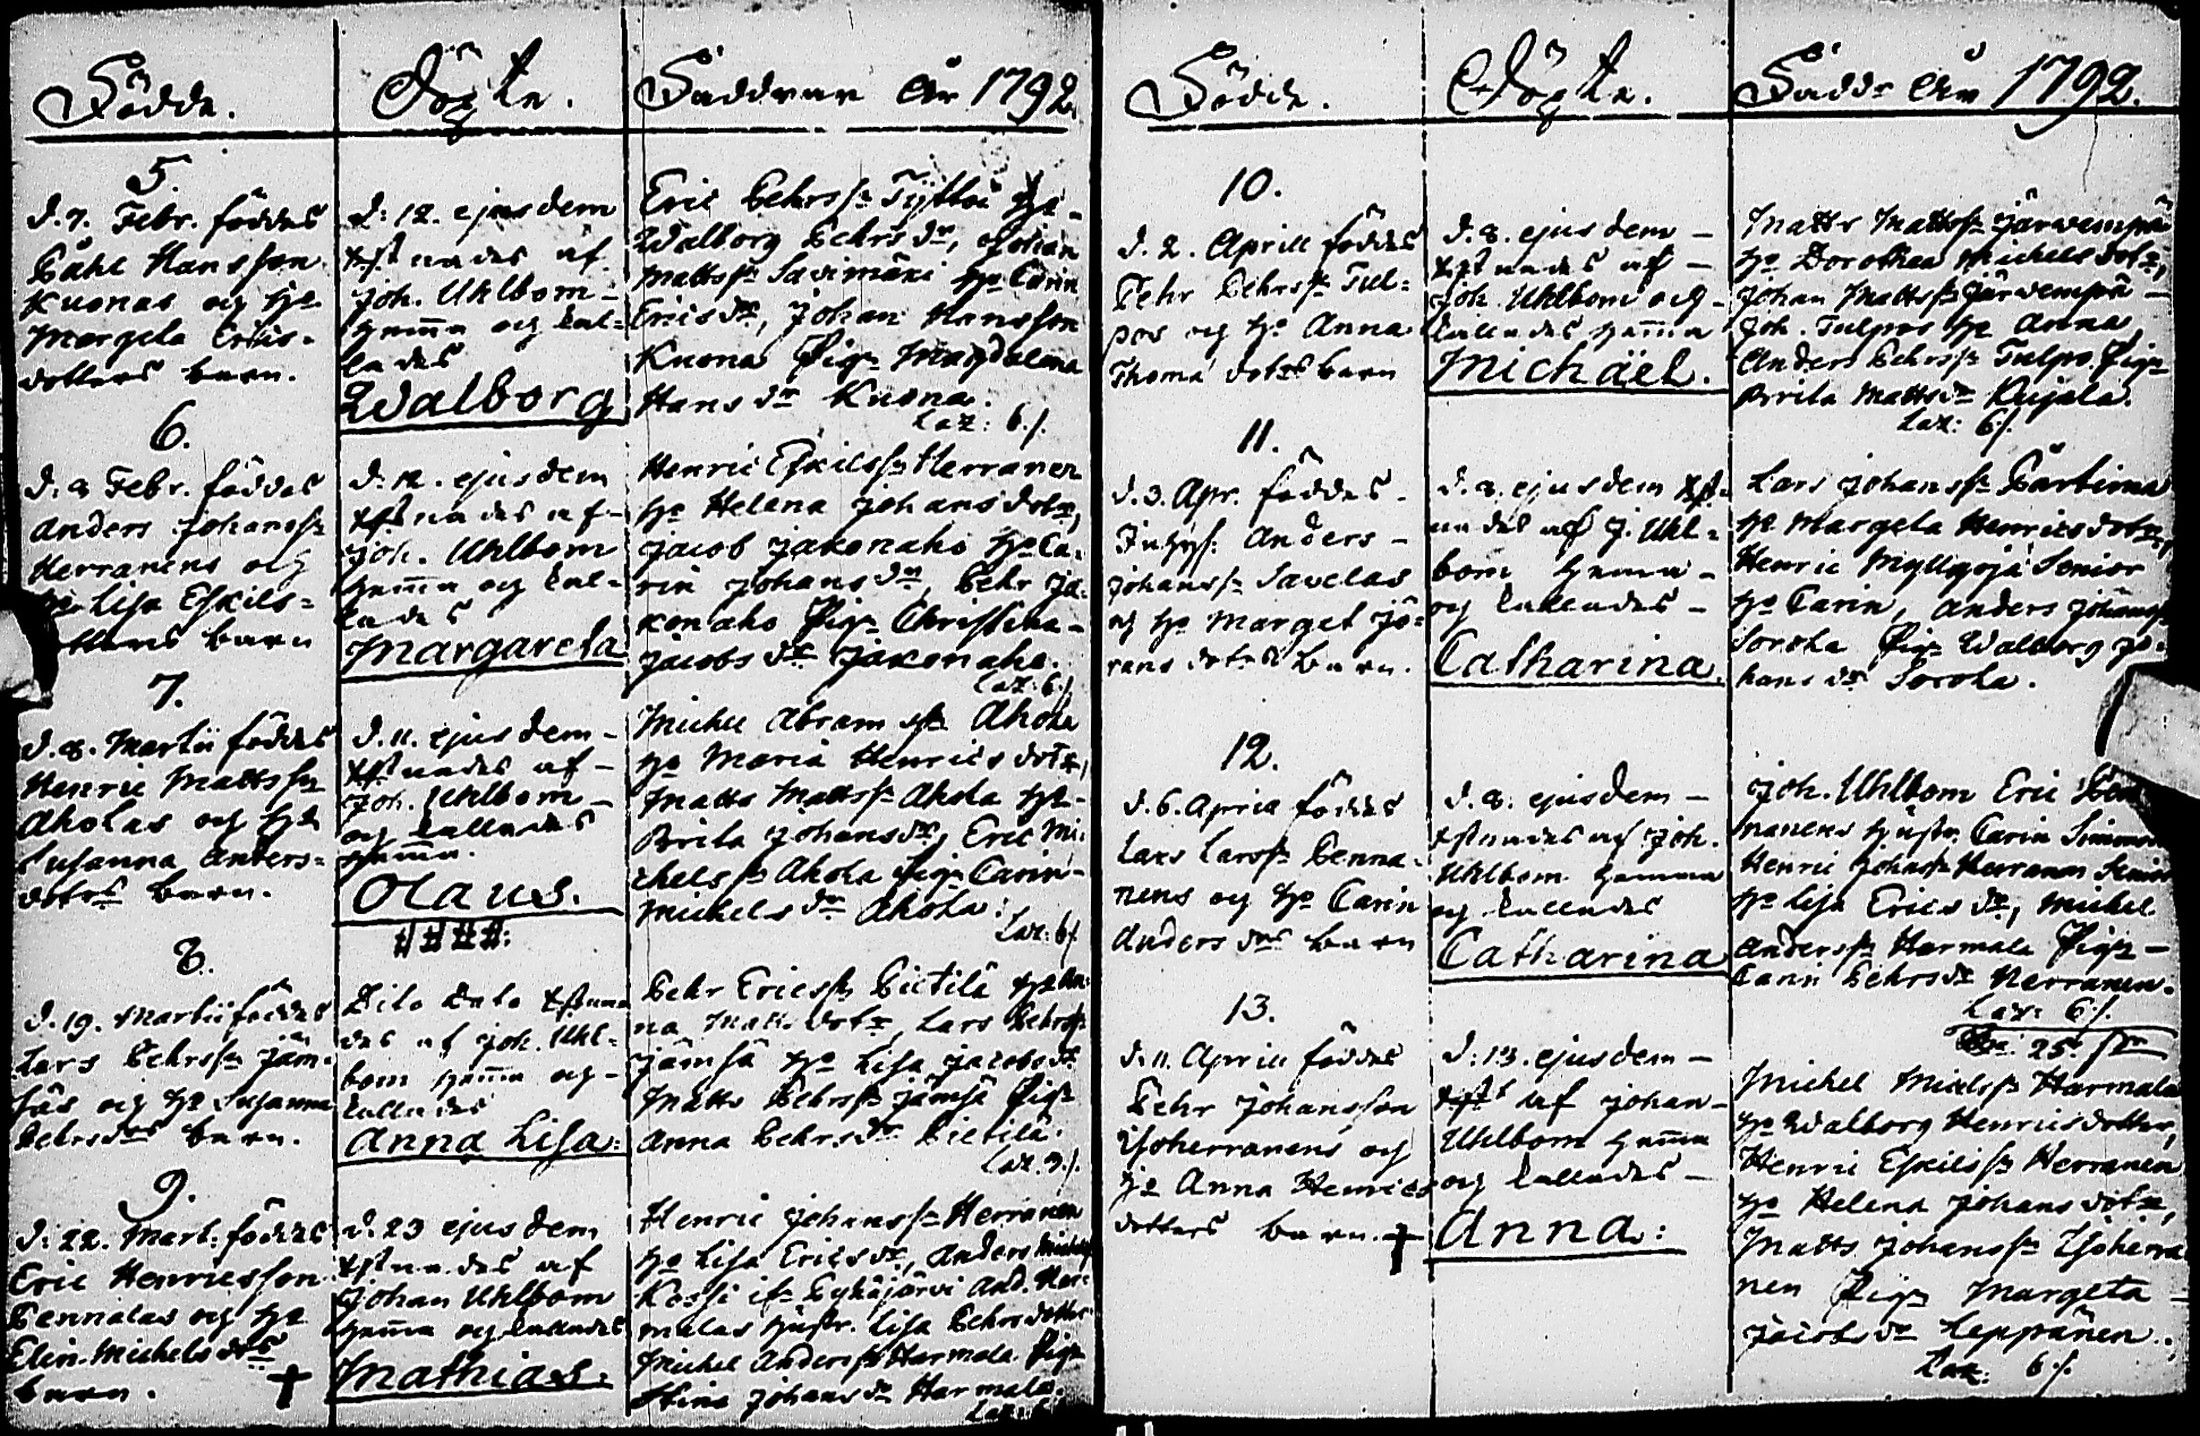 Födde.
Döpte.
Faddrar År 1792.
5.
d. 7. Febr. föddes
Påhl Hansson
Kuonas og ho
Margeta Erics-
dotters barn.
d: 12. ejusdem
xstnades af
Joh. Uhlbom-
hemma og kal-
lades
Walborg
Eric Pehrss:
Walborg Pehrs dr, Johan
Mattss: Savimäki ho Carin
Erics dr, Johan Hansson
Kuona Pig: Magdalena
Hans dr Kuona.
Laz: 6 /.
6.
d: 8 Febr. föddes
Anders Johanss:
Herranens og
ho Lisa Eskils-
dotters barn
d: 12. ejusdem
xstnades af-
Joh. Uhlbom
hemma og kal-
lades
Margareta
Henric Eskilss: Herranen
ho Helena Johans dotr,
Jacob Jakonaho ho Ca-
rin Johans dr, Pehr Ja-
konaho Pig: Christina-
Jacobs dr Jakonaho.
Laz: 6 /.
7.
d. 8. Martii föddes
Henric Mattss:
Aholas og ho
Susanna Anders-
dotrs barn.
d. 11. ejusdem-
xstnades af-
Joh. Uhlbom-
og kallades
hemma.
Olaus.
####:
Michel Abramss: Ahola
ho Maria Henrics dotr,
Matts Mattss: Ahola ho-
Brita Johans dr, Eric Mi-
chelss: Ahola Pig: Carin-
Michels dr Ahola:
Laz: 6 /.
8.
d. 19. Martii föddes
Lars Pehrss: Jäm-
säs og ho Susanna
Pehrs drs barn.
Dito Dato xstna-
des af Joh. Uhl-
bom hemma og-
kallades
Anna Lisa:
Pehr Ericss: Pietilä ho An-
na Matts dotr, Lars Pehrss:
Jämsä ho Lisa Jacobs dr
Matts Pehrss: Jämsä Pig:
Anna Pehrs dr Pietilä.
Laz. 9 /.
9.
d: 22. Mart: föddes
Eric Henricsson
Pennalas og ho
Elin Michels drs
barn. †
d. 23 ejusdem
xstnades af
Johan Uhlbom
hemma og kallades
Mathias.
Henric Johanss: Herranen
ho Lisa Erics dr, Anders
Kossi ifr. Pyhäjärvi And. Har-
malas hustr. Lisa Pehrs dotter
Michel Anderss: Harmala Pig:
Stina Johans dr Harmala.
Födde.
Döpte.
Faddr År 1792.
10.
d. 2. Aprill föddes
Pehr Pehrss: Tul-
pos og ho Anna
Thoma dotrs barn
d. 8. ejusdem-
xstnades af-
Joh. Uhlbom og-
kallades hemma
Michäel.
Matts Mattss: Järvempä
ho Dorothea Michels dotr,
Johan Mattss: Järvempä-
Joh. Tulpos ho Anna,
Anders Pehrss: Tulpo. Pig:
Brita Matts dr Kujala.
Laz: 6 /.
11.
d. 3. Apr. föddes-
Inhys: Anders-
Johanss: Savelas
og ho Marget Jö-
rans dotrs barn.
d. 8. ejusdem xst-
nades af J. Uhl-
bom hemma-
og kallades-
Catharina.
Lars Johanss: Pärtima
ho Margeta Henrics dotr,
Henric Myllyoja Senior
ho Carin, Anders Johanss:
Sorola, Pig: Walborg Jo-
hans dr Sorola.
12.
d. 6. Aprill föddes
Lars Larss: Penna-
nens og ho Carin
Anders drs barn
d. 8. ejusdem-
xstnades af Joh.
Uhlbom hemma
og kallades
Catharina
Joh. Uhlbom Eric
nanens hustr. Carin
Henric Johanss: Herranen Senior
ho Lisa Erics dr, Michel
Anderss: Harmala Pig:-
Carin Pehrs dr Herranen.
Laz: 6 /.
25.
13.
d. 11. Aprill föddes
Pehr Johansson
Isoherranens og
ho Anna Henrics
dotters barn. †
d: 13. ejusdem-
xst af Johan-
Uhlbom hemma
og kallades-
Anna:
Michel Mickelss: Harmala
ho Walborg Henrics dotter,
Henric Eskilss: Herranen
ho Helena Johans dotr,
Matts Johanss: Isoherra-
nen Pig: Margeta-
Jacobs dr Leppänen.
Laz: 6 /.